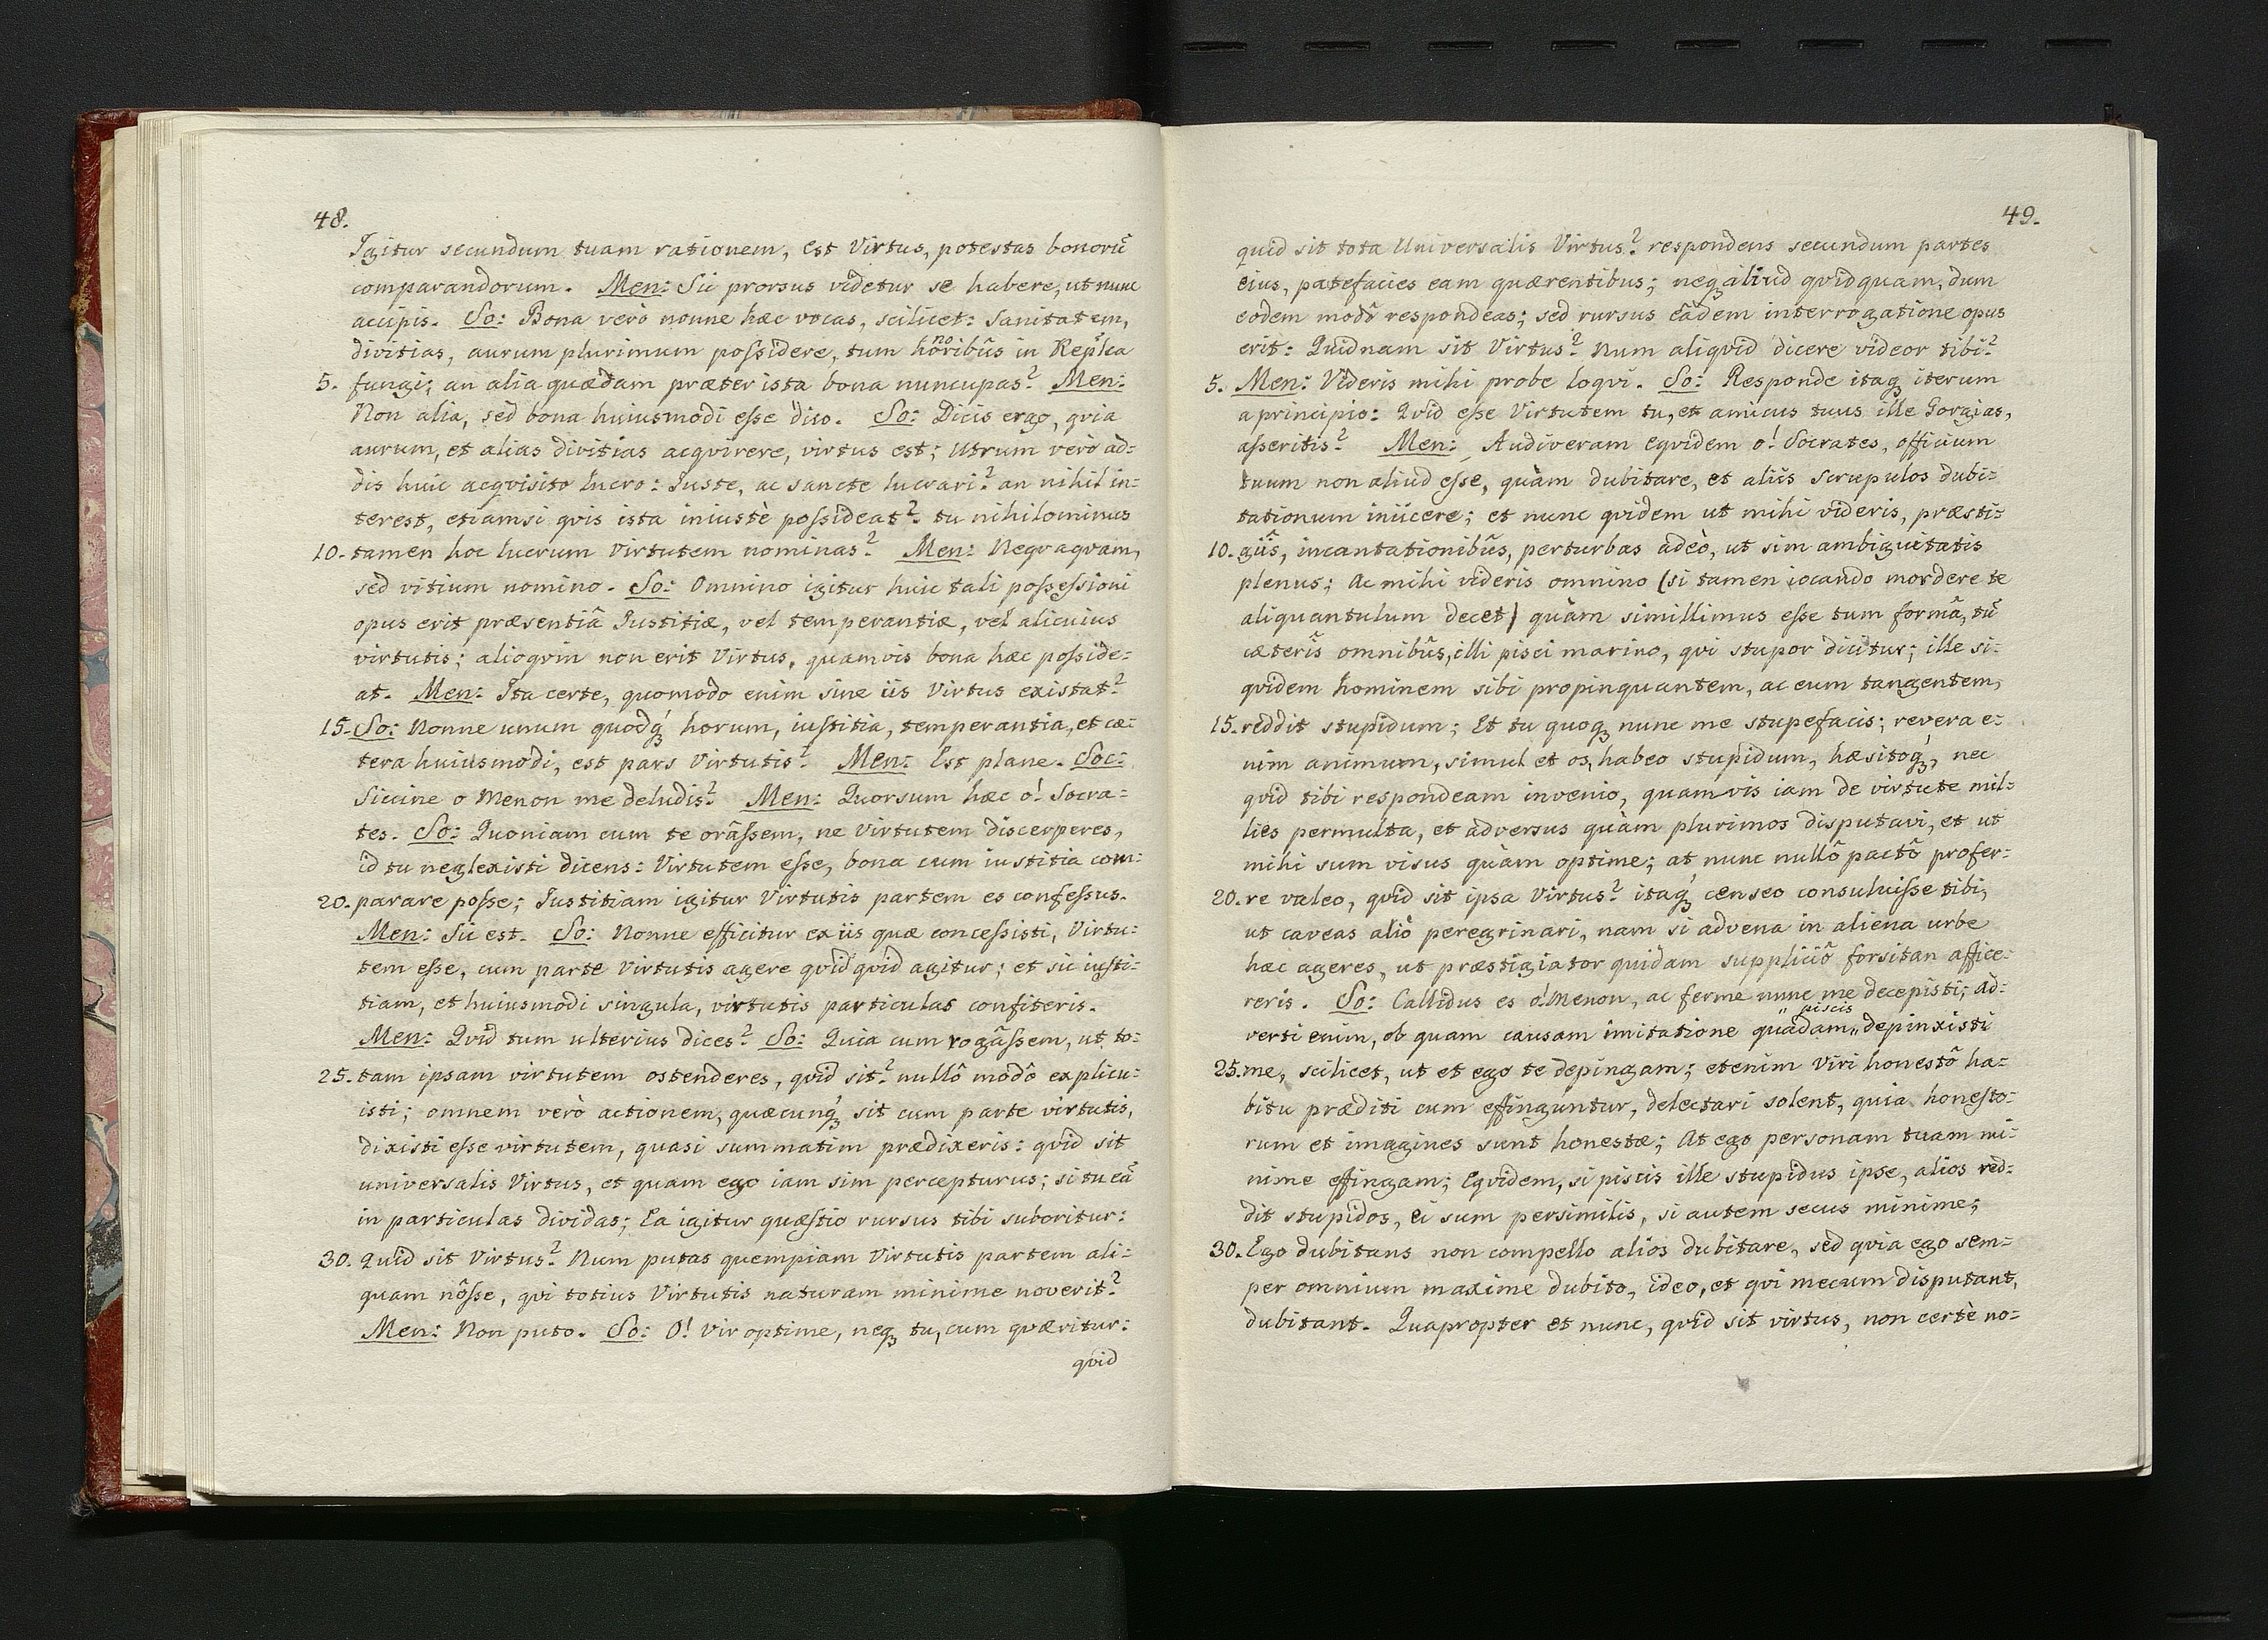 48.
Igitur secundum tuam rationem, est Virtus, potestas bonorū
comparandorum. Men: Sic prorsus videtur se habere, ut nunc
accipis. So: Bona verò nonne hæc vocas, scilicet: Sanitatem,
divitias, aurum plurimum poſsidere, tum honoribûs in Rep̃lca
5. fungi; an alia quædam præter ista bona nuncupas? Men:
Non alia, sed bona huiusmodi eſse dico. So: Dicis ergo, qvia
aurum, et alias divitias acqvirere, virtus est; Utrum verò ad=
dis huic acqvisito lucro: Iuste, ac sancte lucrari? an nihil in=
terest, etiamsi qvis ista iniustè poſsideat? tu nihilominus
10. tamen hoc lucrum Virtutem nominas? Men: Neqvaqvam,
sed vitium nomino. So: Omnino igitur huic tali poſseſsioni
opus erit præsentiâ Iustitiæ, vel temperantiæ, vel alicuius
virtutis; alioqvin non erit Virtus, quamvis bona hæc poſside=
at. Men: Ita certe, quomodo enim sine iis Virtus existat?
15. So: Nonne unum quodqꝫ horum, iuſtitia, temperantia, et cæ=
tera huiusmodi, est pars Virtutis? Men: Est plane. Soc:
Siccine o Menon me deludis? Men: Quorsum hæc o! Socra=
tes. So: Quoniam cum te orâſsem, ne Virtutem discerperes,
id tu neglexisti dicens: Virtutem eſse, bona cum iustitia com=
20. parare poſse; Iustitiam igitur Virtutis partem es confeſsus.
Men: Sic est. So: Nonne efficitur ex iis quæ conceſsisti, Virtu=
tem eſse, cum parte Virtutis agere qvidqvid agitur; et sic iuſti=
tiam, et huiusmodi singula, virtutis particulas confiteris.
Men: Qvid tum ulterius dices? So: Quia cum rogâſsem, ut to=
25. tam ipsam virtutem ostenderes, qvid sit? nullô modô explicu=
isti; omnem verò actionem, quæcunqꝫ sit cum parte virtutis,
dixisti eſse virtutem, quasi summatim prædixeris: qvid sit
universalis Virtus, et quam ego iam sim percepturus; si tu eā
in particulas dividas; Ea igitur quæſtio rursus tibi suboritur:
30. Quid sit Virtus? Num putas quempiam Virtutis partem ali=
quam nôſse, qvi totius Virtutis naturam minime noverit?
Men: Non puto. So: O! Vir optime, neqꝫ tu, cum qværitur:
qvid
49.
quid sit tota Universalis Virtus? respondens secundum partes
eius, patefacies eam quærentibus; neqꝫ aliud qvidquam, dum
eodem modô respondeas; sed rursus eâdem interrogatione opus
erit: Quidnam sit Virtus? Num aliqvid dicere videor tibi?
5. Men: Videris mihi probe loqvi. So: Responde itaqꝫ iterum
a principio: Qvid eſse Virtutem tu, et amicus tuus ille Gorgias,
aſseritis? Men: Audiveram eqvidem o! Socrates, officium
tuum non aliud eſse, quàm dubitare, et aliis scrupulos dubi=
tationum iniicere; et nunc qvidem ut mihi videris, præsti=
10. giîs, incantationibûs, perturbas adeò, ut sim ambiguitatis
plenus; Ac mihi videris omnino (si tamen iocando mordere te
aliquantulum decet) quàm simillimus eſse tum formâ, tū
cæterîs omnibûs, illi pisci marino, qvi stupor dicitur; ille si=
qvidem hominem sibi propinquantem, ac eum tangentem,
15. reddit stupidum; Et tu quoqꝫ nunc me stupefacis; revera e=
nim animum, simul et os, habeo stupidum, hæsitoqꝫ, nec
qvid tibi respondeam invenio, quamvis iam de virtute mil=
lies permulta, et adversus quàm plurimos disputavi, et ut
mihi sum visus quàm optime; at nunc nullô pactô profer=
20. re valeo, qvid sit ipsa Virtus? itaqꝫ censeo consuluiſse tibi,
ut caveas aliò peregrinari, nam si advena in aliena urbe
hæc ageres, ut præstigiator quidam suppliciô forsitan affice=
reris. So: Callidus es o! Menon, ac ferme nunc me decepisti; Ad=
verti enim, ob quam causam imitatione quâdam „piscis„ depinxisti
25. me, scilicet, ut et ego te depingam; etenim Viri honestô ha=
bitu præditi cum effinguntur, delectari solent, quia honeſto=
rum et imagines sunt honestæ; At ego personam tuam mi=
nime effingam; Eqvidem, si piscis ille stupidus ipse, alios red=
dit stupidos, ei sum persimilis, si autem secus minime;
30. Ego dubitans non compello alios dubitare, sed qvia ego sem=
per omnium maxime dubito, ideo, et qvi mecum disputant,
dubitant. Quapropter et nunc, qvid sit virtus, non certè no=